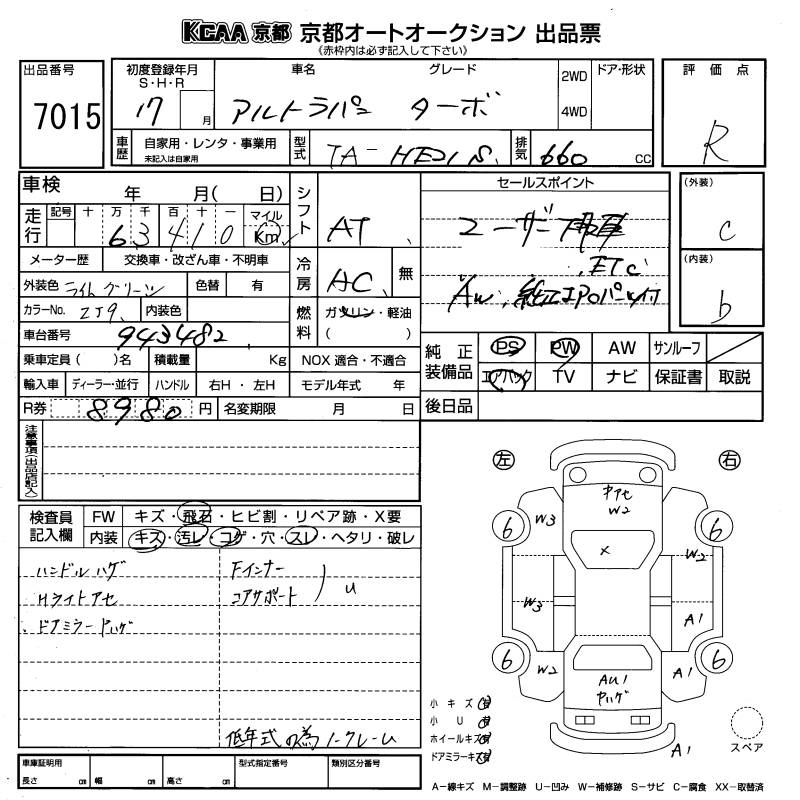 KCAA 京都 京都オートオークション 出品票
《赤枠内は必ず記入して下さい》
出品番号 初度登録年月 車名 グレード 2WD ドア・形状 評価点
S・H・R
7015 17 月 アルトラパン ターボ 4WD R
車歴 自家用・レンタ・事業用 型式 TA-HE21S 排気 660 CC
未記入は自家用
車検 年 月( 日) シフト AT セールスポイント (外装)
走行 記号 十 万 千 百 十 一 マイル ユーザー C
63410 Km ETC
メーター歴 交換車・改ざん車・不明車 冷房 AC 無 (内装)
外装色 ライトグリーン 色替 有 AW. 純正エアロパーツ付 b
カラーNo. ZJ9 内装色 燃料 ガソリン・軽油
車台番号 943482 ( )
乗車定員( )名 積載量 Kg NOX適合・不適合 純正装備品 PS PW AW サンルーフ
輸入車 ディーラー・並行 ハンドル 右H・左H モデル年式 年 エアバック TV ナビ 保証書 取説
R券 8980 円 名変期限 月 日 後日品
注意事項(出品店記入)
左 右
検査員記入欄 FW キズ・飛石・ヒビ割・リペア跡・X要
内装 キズ・汚レ・コゲ・穴・スレ・ヘタリ・破レ
ハンドルハゲ Fインナー
Hライトアセ コアサポート U
ドアミラーヤハゲ
低年式の為ノークレーム
ヤアセ
W2
W3 6 6
X W2
W3 A1
6 6
W2 A1
AU1
ヤハゲ
A1
小キズ 有
小U 有
ホイールキズ 有
ドアミラーキズ 有
スペア
車庫証明用 型式指定番号 類別区分番号
長さ cm 幅 cm 高さ cm
A-線キズ M-調整跡 U-凹み W-補修跡 S-サビ C-腐食 XX-取替済